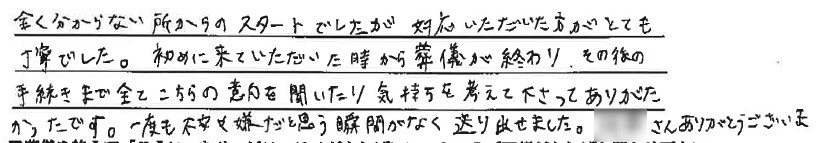 全く分からない所からのスタートでしたが対応いただいた方がとても
丁寧でした。初めに来ていただいた時から葬儀が終わり、その後の
手続きまで全てこちらの意向を聞いたり気持ちを考えて下さってありがた
かったです。一度も不安や嫌だと思う瞬間がなく送り出せました。
さんありがとうございま